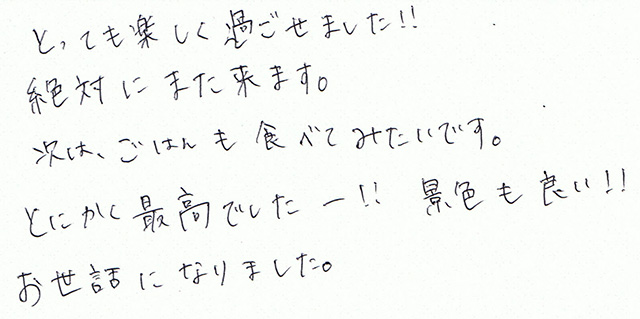 とっても楽しく過ごせました!!
絶対にまた来ます。
次は、ごはんも食べてみたいです。
とにかく最高でしたー!! 景色も良い!!
お世話になりました。